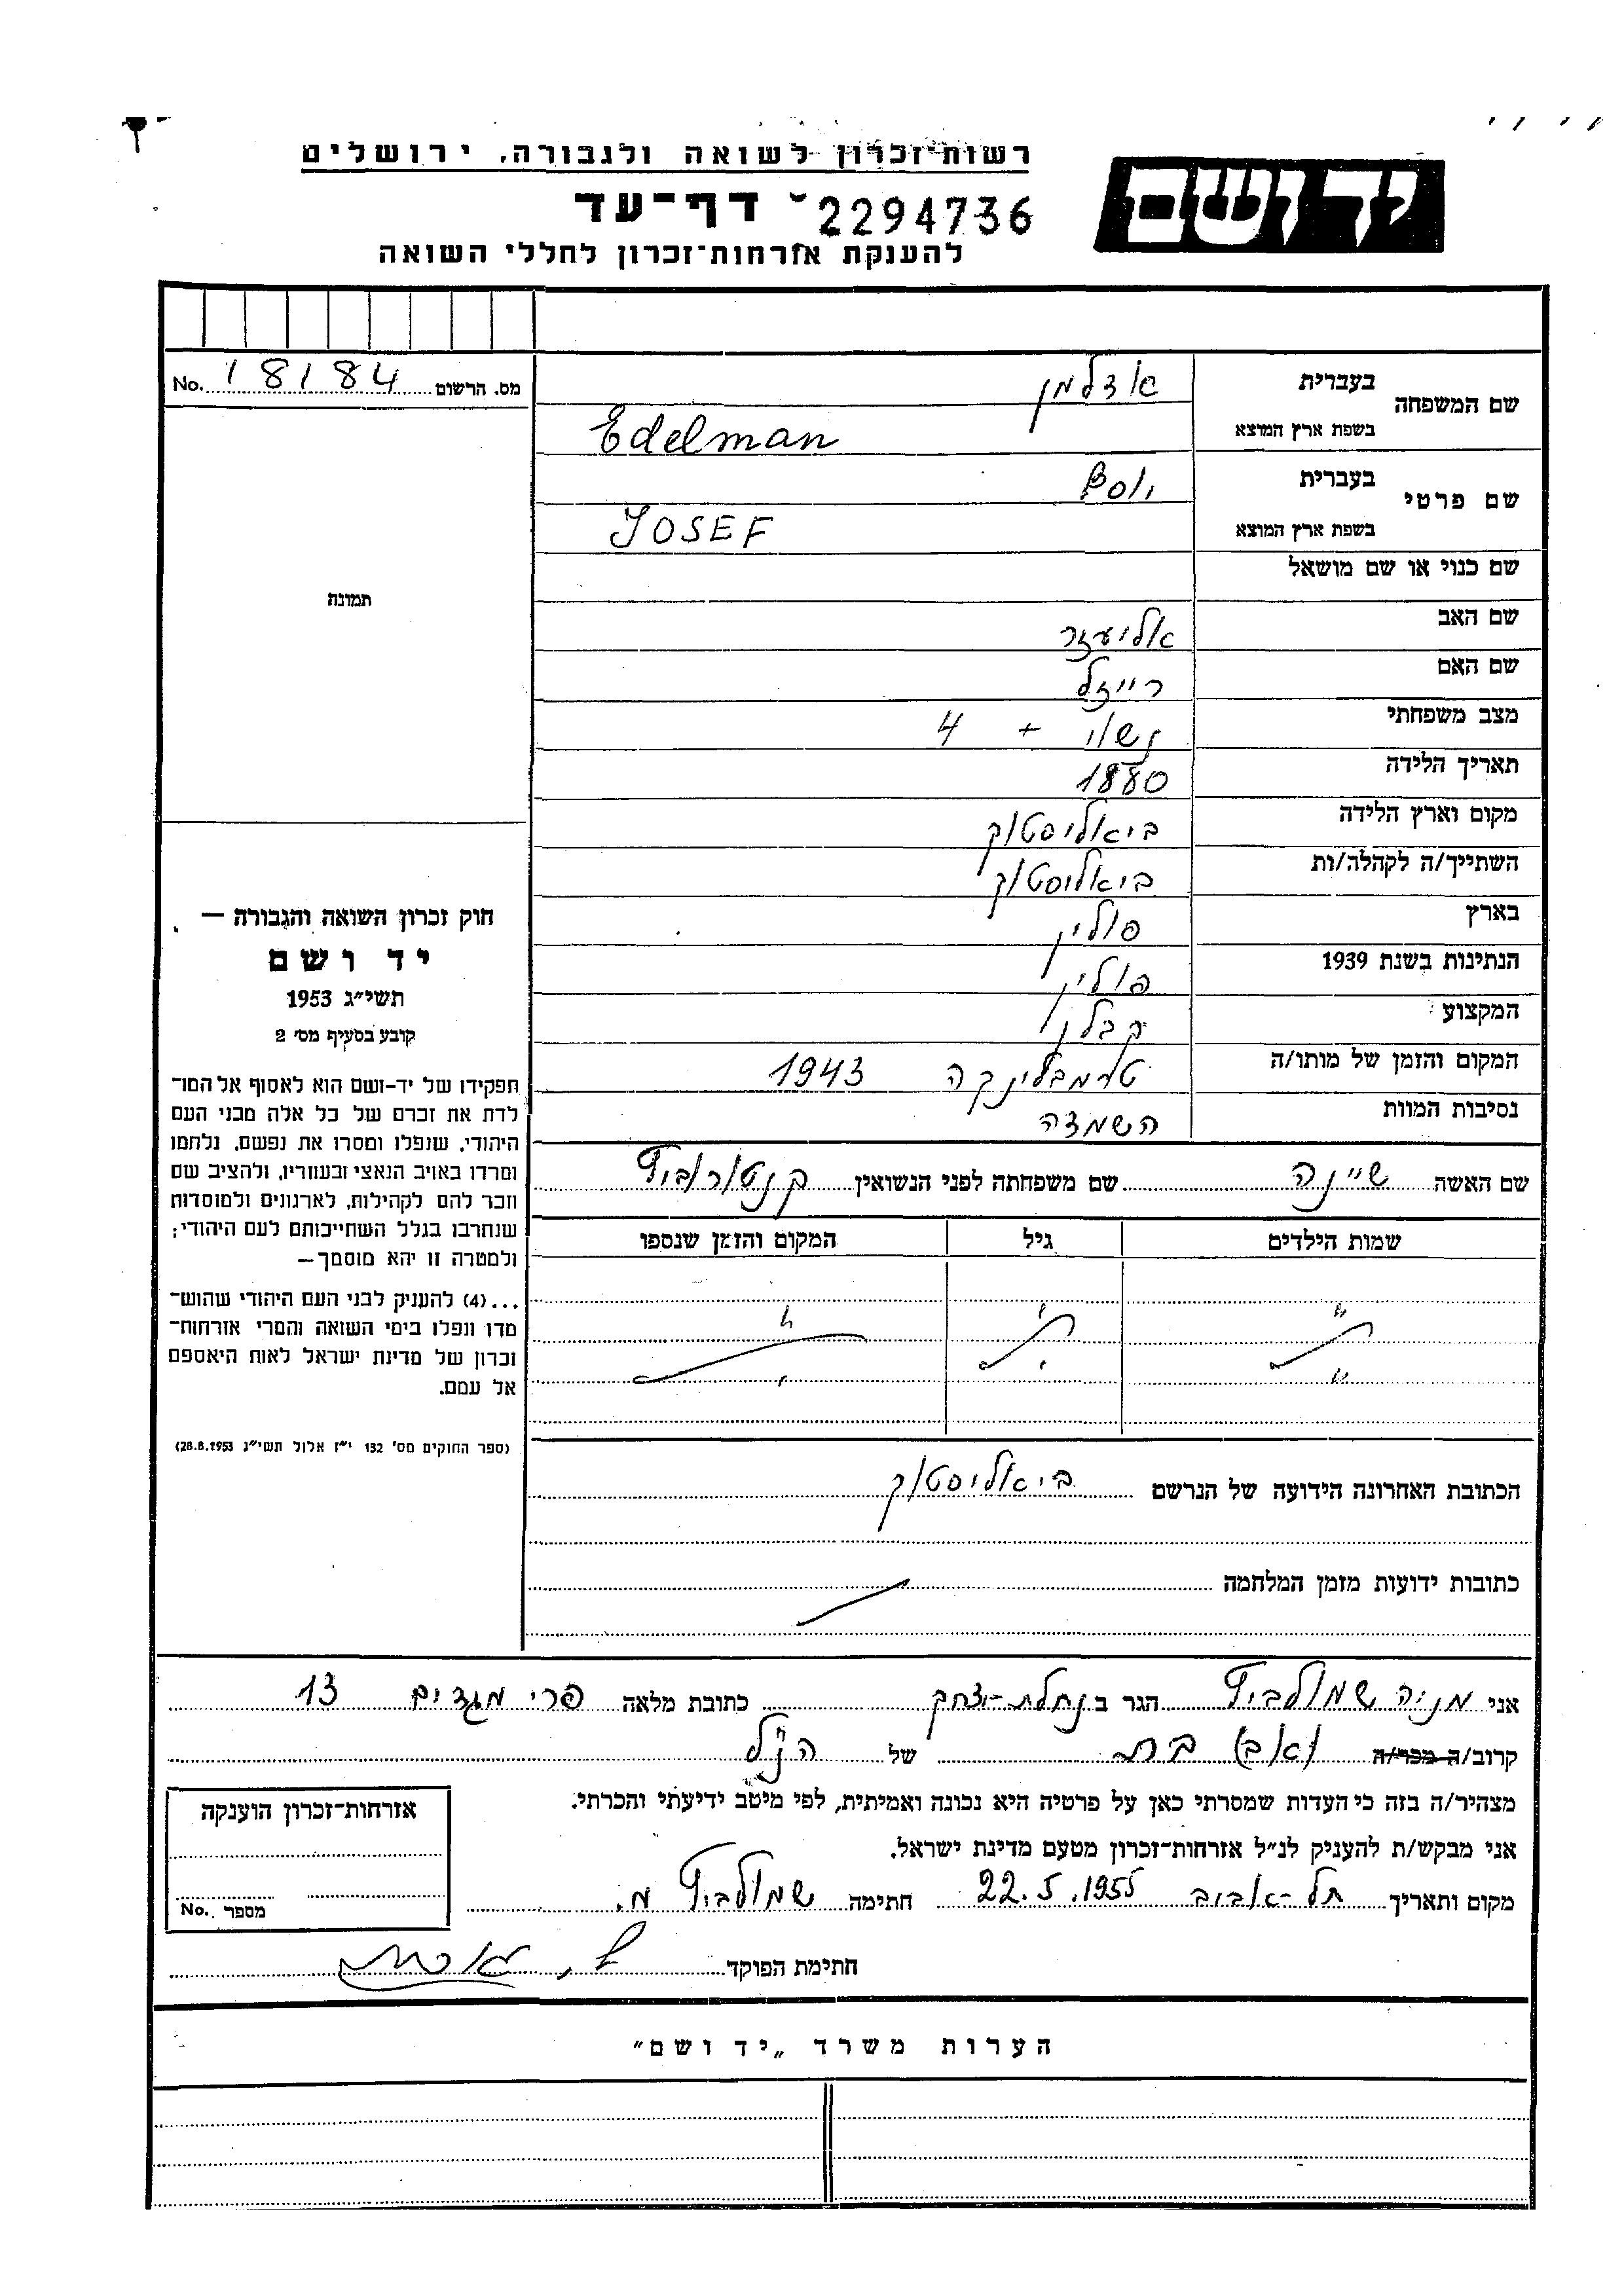 יד ושם
רשות־זכרון לשואה ולגבורה, ירושלים
דף־עד 2294736
להענקת אזרחות־זכרון לחללי השואה
מס. הרשום 18184 No.
תמונה
שם המשפחה בעברית אדלמן
בשפת ארץ המוצא Edelman
שם פרטי בעברית יוסף
בשפת ארץ המוצא JOSEF
שם כנוי או שם מושאל
שם האב אליעזר
שם האם רייזל
מצב משפחתי נשוי + 4
תאריך הלידה 1880
מקום וארץ הלידה ביאליסטוק
השתייך/ה לקהלה/ות ביאליסטוק
בארץ פולין
הנתינות בשנת 1939 פולין
המקצוע קבלן
המקום והזמן של מותו/ה טרמבלינקה 1943
נסיבות המוות השמדה
שם האשה שיינה שם משפחתה לפני הנשואין קנטורוביץ
שמות הילדים גיל המקום והזמן שנספו
הכתובת האחרונה הידועה של הנרשם ביאליסטוק
כתובות ידועות מזמן המלחמה
חוק זכרון השואה והגבורה —
יד ושם
תשי״ג 1953
קובע בסעיף מס׳ 2
תפקידו של יד־ושם הוא לאסוף אל המו־
לדת את זכרם של כל אלה מבני העם
היהודי, שנפלו ומסרו את נפשם, נלחמו
ומרדו באויב הנאצי ובעוזריו, ולהציב שם
וזכר להם לקהילות, לארגונים ולמוסדות
שנחרבו בגלל השתייכותם לעם היהודי;
ולמטרה זו יהא מוסמך —
...(4) להעניק לבני העם היהודי שהוש־
מדו ונפלו בימי השואה והמרי אזרחות־
זכרון של מדינת ישראל לאות היאספם
אל עמם.
(ספר החוקים מס׳ 132 י״ז אלול תשי״ג 28.8.1953)
אני מניה שמולביץ הגר ב נחלת-יצחק כתובת מלאה פרי מגדים 13
קרוב/ה מכר/ה (אב) בת של הנ״ל
מצהיר/ה בזה כי העדות שמסרתי כאן על פרטיה היא נכונה ואמיתית, לפי מיטב ידיעתי והכרתי.
אני מבקש/ת להעניק לנ״ל אזרחות־זכרון מטעם מדינת ישראל.
מקום ותאריך תל-אביב 22.5.1955 חתימה שמולביץ מ.
חתימת הפוקד
אזרחות־זכרון הוענקה
מספר No.
הערות משרד „יד ושם״